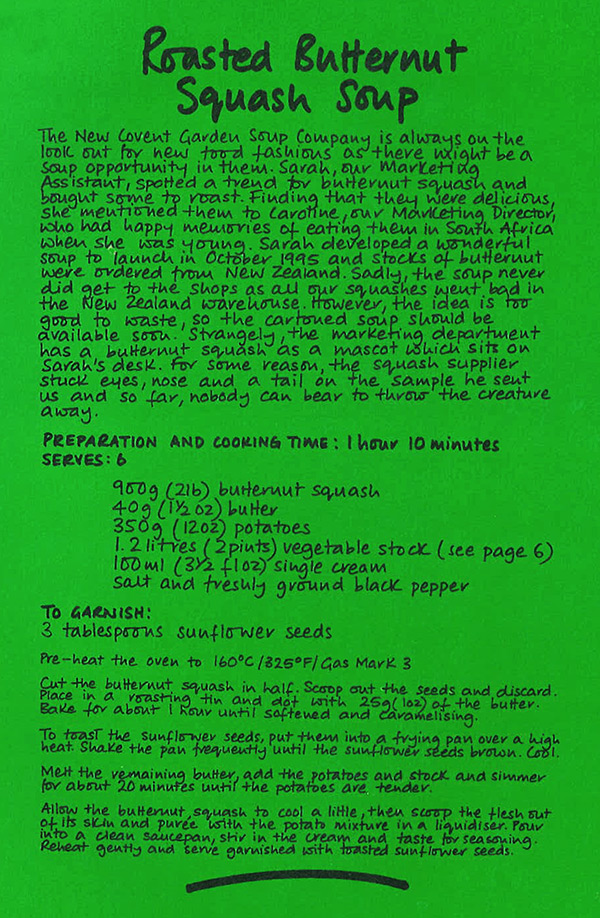 Roasted Butternut
Squash Soup
The New Covent Garden Soup Company is always on the
look out for new food fashions as there might be a
soup opportunity in them. Sarah, our Marketing
Assistant, spotted a trend for butternut squash and
bought some to roast. Finding that they were delicious,
she mentioned them to Caroline, our Marketing Director,
who had happy memories of eating them in South Africa
when she was young. Sarah developed a wonderful
soup to launch in October 1995 and stocks of butternut
were ordered from New Zealand. Sadly, the soup never
did get to the shops as all our squashes went bad in
the New Zealand warehouse. However, the idea is too
good to waste, so the cartoned soup should be
available soon. Strangely, the marketing department
has a butternut squash as a mascot which sits on
Sarah's desk. For some reason, the squash supplier
stuck eyes, nose and a tail on the sample he sent
us and so far, nobody can bear to throw the creature
away.
PREPARATION AND COOKING TIME: 1 hour 10 minutes
SERVES: 6
900g (2lb) butternut squash
40g (1½ oz) butter
350g (12oz) potatoes
1.2 litres (2 pints) vegetable stock (see page 6)
100ml (3½ fl oz) single cream
salt and freshly ground black pepper
TO GARNISH:
3 tablespoons sunflower seeds
Pre-heat the oven to 160°C/325°F/Gas Mark 3
Cut the butternut squash in half. Scoop out the seeds and discard.
Place in a roasting tin and dot with 25g (1oz) of the butter.
Bake for about 1 hour until softened and caramelising.
To toast the sunflower seeds, put them into a frying pan over a high
heat. Shake the pan frequently until the sunflower seeds brown. Cool.
Melt the remaining butter, add the potatoes and stock and simmer
for about 20 minutes until the potatoes are tender.
Allow the butternut squash to cool a little, then scoop the flesh out
of its skin and purée with the potato mixture in a liquidiser. Pour
into a clean saucepan, stir in the cream and taste for seasoning.
Reheat gently and serve garnished with toasted sunflower seeds.